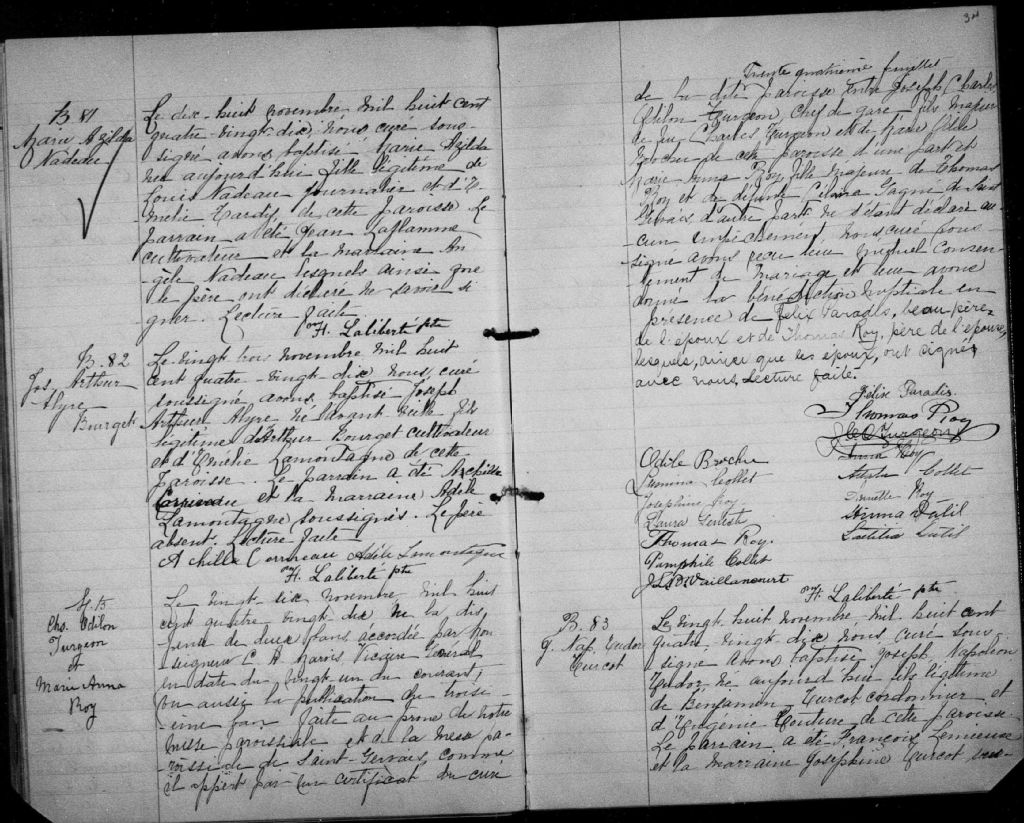 B 81
Marie Azilda
Nadeau
Le dix-huit novembre mil huit cent
quatre-vingt-dix, Nous curé sous-
signé avons baptisé Marie Azilda
née aujourd'hui fille légitime de
Louis Nadeau journalier et d'E-
mélie Tardif de cette paroisse Le
parrain a été Jean Laflamme
cultivateur et la marraine An-
gèle Nadeau lesquels ainsi que
le père ont déclaré ne savoir si-
gner. Lecture faite
H. Laliberté ptre
B. 82
Jos. Arthur
Alyre
Bourget
Le vingt trois novembre mil huit
cent quatre-vingt-dix Nous curé
soussigné avons baptisé Joseph
Arthur Alyre né avant veille fils
légitime d'Arthur Bourget cultivateur
et d'Emélie Lamontagne de cette
paroisse. Le parrain a été Achille
Carrineau et la marraine Adèle
Lamontagne soussignés. Le père
absent. Lecture faite
Achille Corriveau Adèle Lamontagne
H. Laliberté ptre
M. 15
Chs. Odilon
Turgeon
et
Marie Anna
Roy
Le vingt-six novembre mil huit
cent quatre-vingt-dix Vu la dis-
pense de deux bans accordée par Mon
seigneur C A Marois Vicaire Général
en date du vingt un du courant,
vu aussi la publication du troisi-
ème ban faite au prône de notre
messe paroissiale et à la messe pa-
roissiale de Saint-Gervais comme
il appert par un certificat du curé
34
Trente quatrième feuillet
de la dite paroisse entre Joseph Charles
Odilon Turgeon, Chef de gare, fils majeur
de feu Charles Turgeon et de Marie Odile
Brochu de cette paroisse d'une part et
Marie Anna Roy fille majeure de Thomas
Roy et de défunte Gagné de Saint
Gervais d'autre part ne s'étant déclaré au-
cun empêchement Nous curé sous-
signé avons reçu leur mutuel consen-
tement de mariage et leur avons
donné la bénédiction nuptiale en
présence de Félix Paradis, beau-père
de l'époux et de Thomas Roy, père de l'épouse,
lesquels, ainsi que les époux, ont signé
avec nous. Lecture faite.
Félix Paradis
Thomas Roy
JCO Turgeon
Anna Roy
Odile Brochu
Collet
Collet
Joséphine Roy
Roy
Laura
Thomas Roy
Pamphile Collet
J. Vaillancourt
H. Laliberté ptre
B. 83
J. Nap. Tudor
Turcot
Le vingt huit novembre mil huit cent
quatre-vingt-dix Nous curé sous-
signé avons baptisé Joseph Napoléon
Tudor né aujourd'hui fils légitime
de Benjamin Turcot cordonnier et
d'Eugénie Couture de cette paroisse.
Le parrain a été François Lemieux
et la marraine Joséphine Turcot sous-